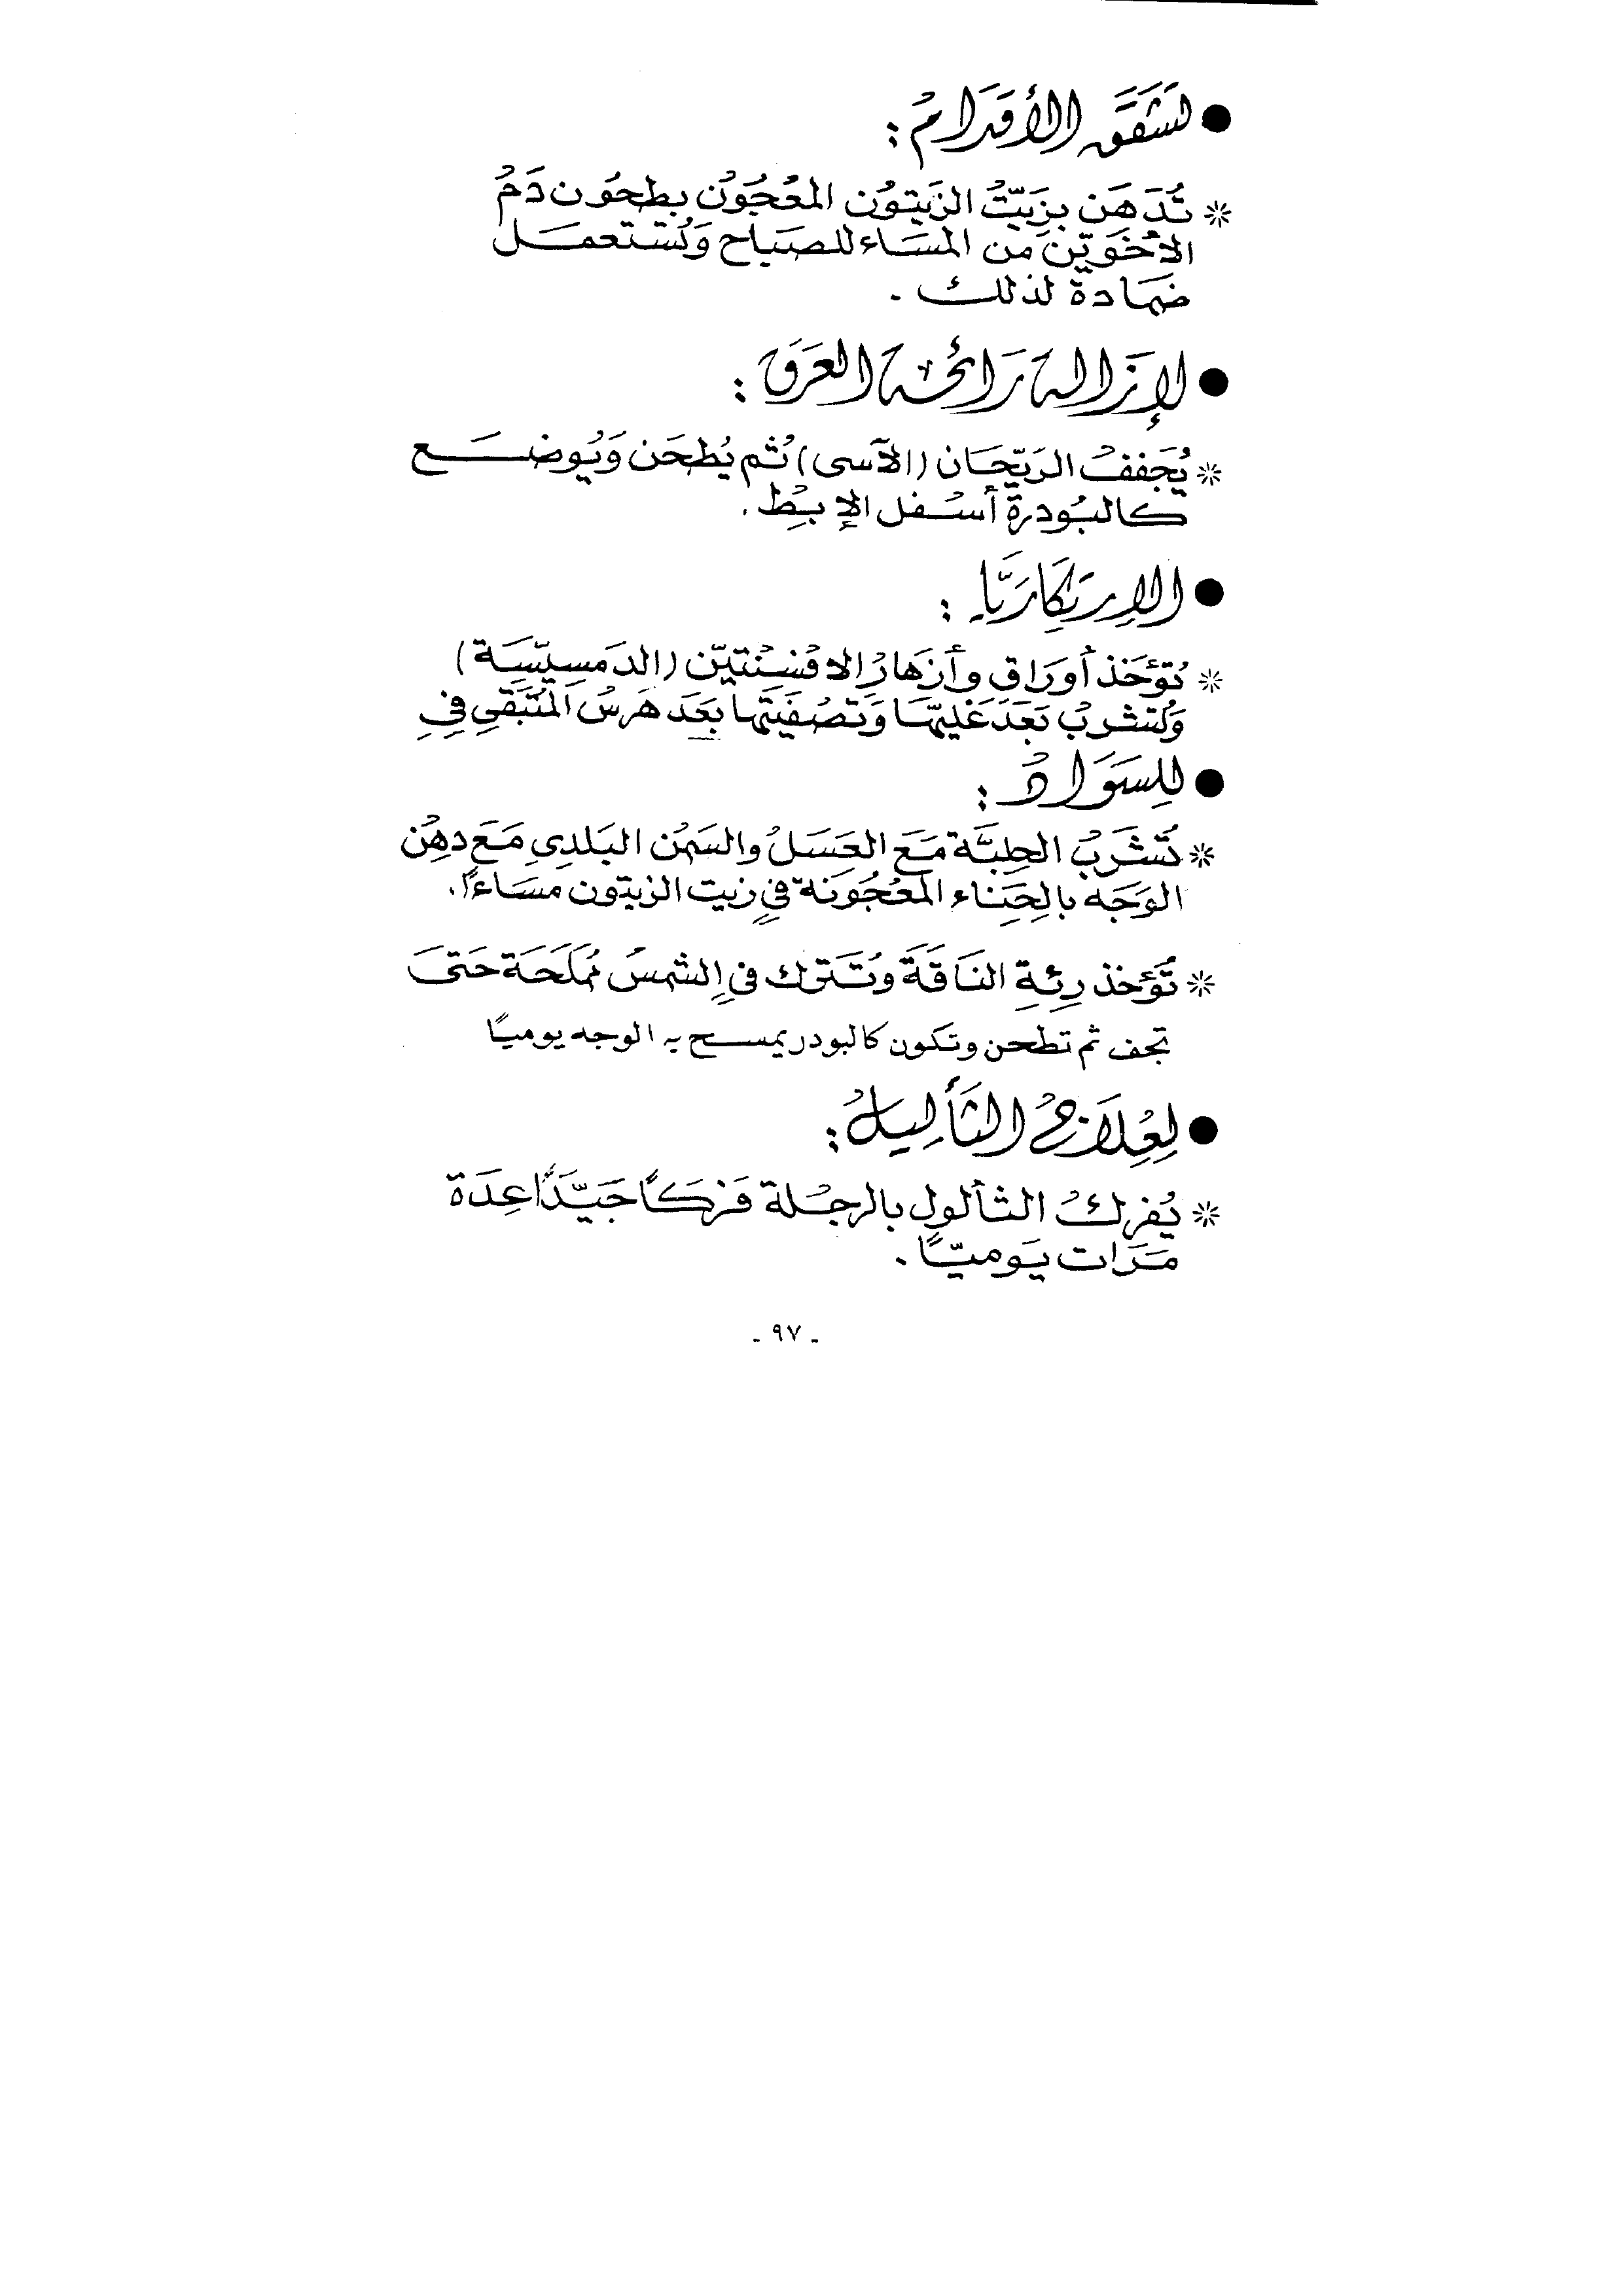 ● لتشقق الأقدام :
* تُدهن بزيت الزيتون المعجون بطحون دم
الأخوين من المساء للصباح وتستعمل
ضمادة لذلك .
● لإزالة رائحة العرق :
* يُجفف الريحان (الآسى) ثم يُطحن ويُوضع
كالبودرة أسفل الإبط .
● الارتكاريا :
* تُؤخذ أوراق وأزهار الافسنتين (الدمسيسة)
وتشرب بعد غليها وتصفيتها بعد هرس المتبقي في
● للسواد :
* تُشرب الحلبة مع العسل والسمن البلدي مع دهن
الوجه بالحناء المعجونة في زيت الزيتون مساءًا .
* تُؤخذ رئة الناقة وتترك في الشمس مملحة حتى
تجف ثم تطحن وتكون كالبودر يمسح به الوجه يوميًا
● لعلاج الثأليل :
* يُفرك الثألول بالرجلة فركًا جيّدًا عدة
مرات يوميًا .
- ٩٧ -